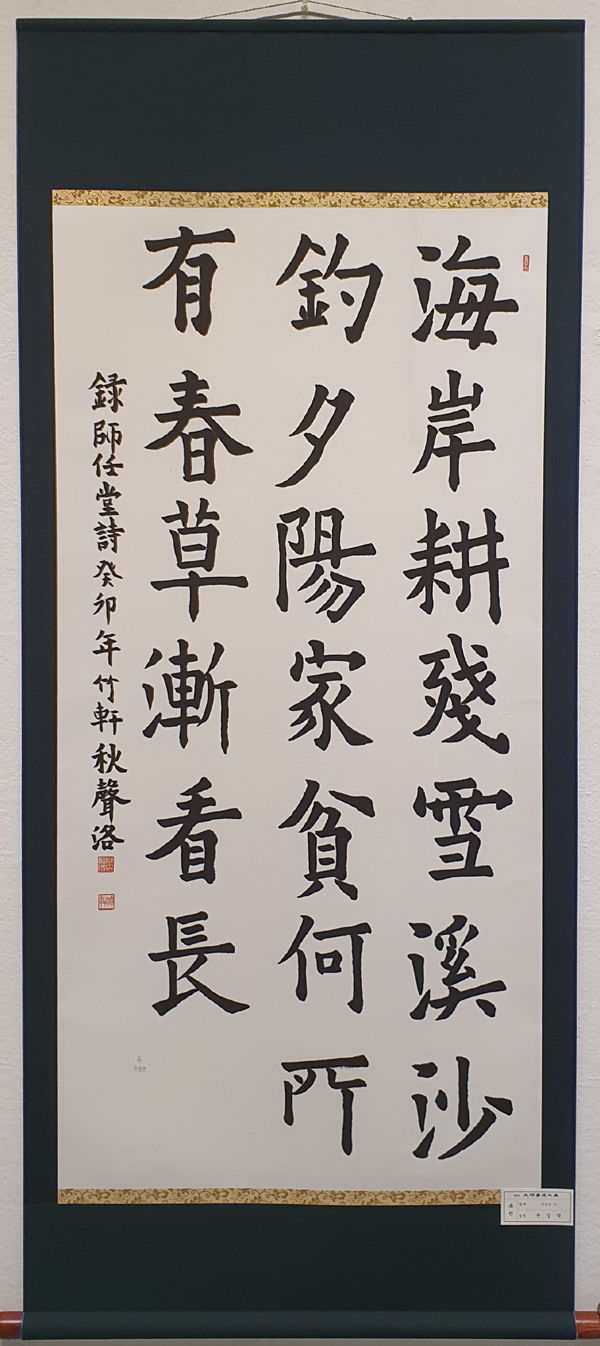 海岸耕殘雪溪沙
釣夕陽家貧何所
有春草漸看長
録師任堂詩癸卯年竹軒秋聲洛